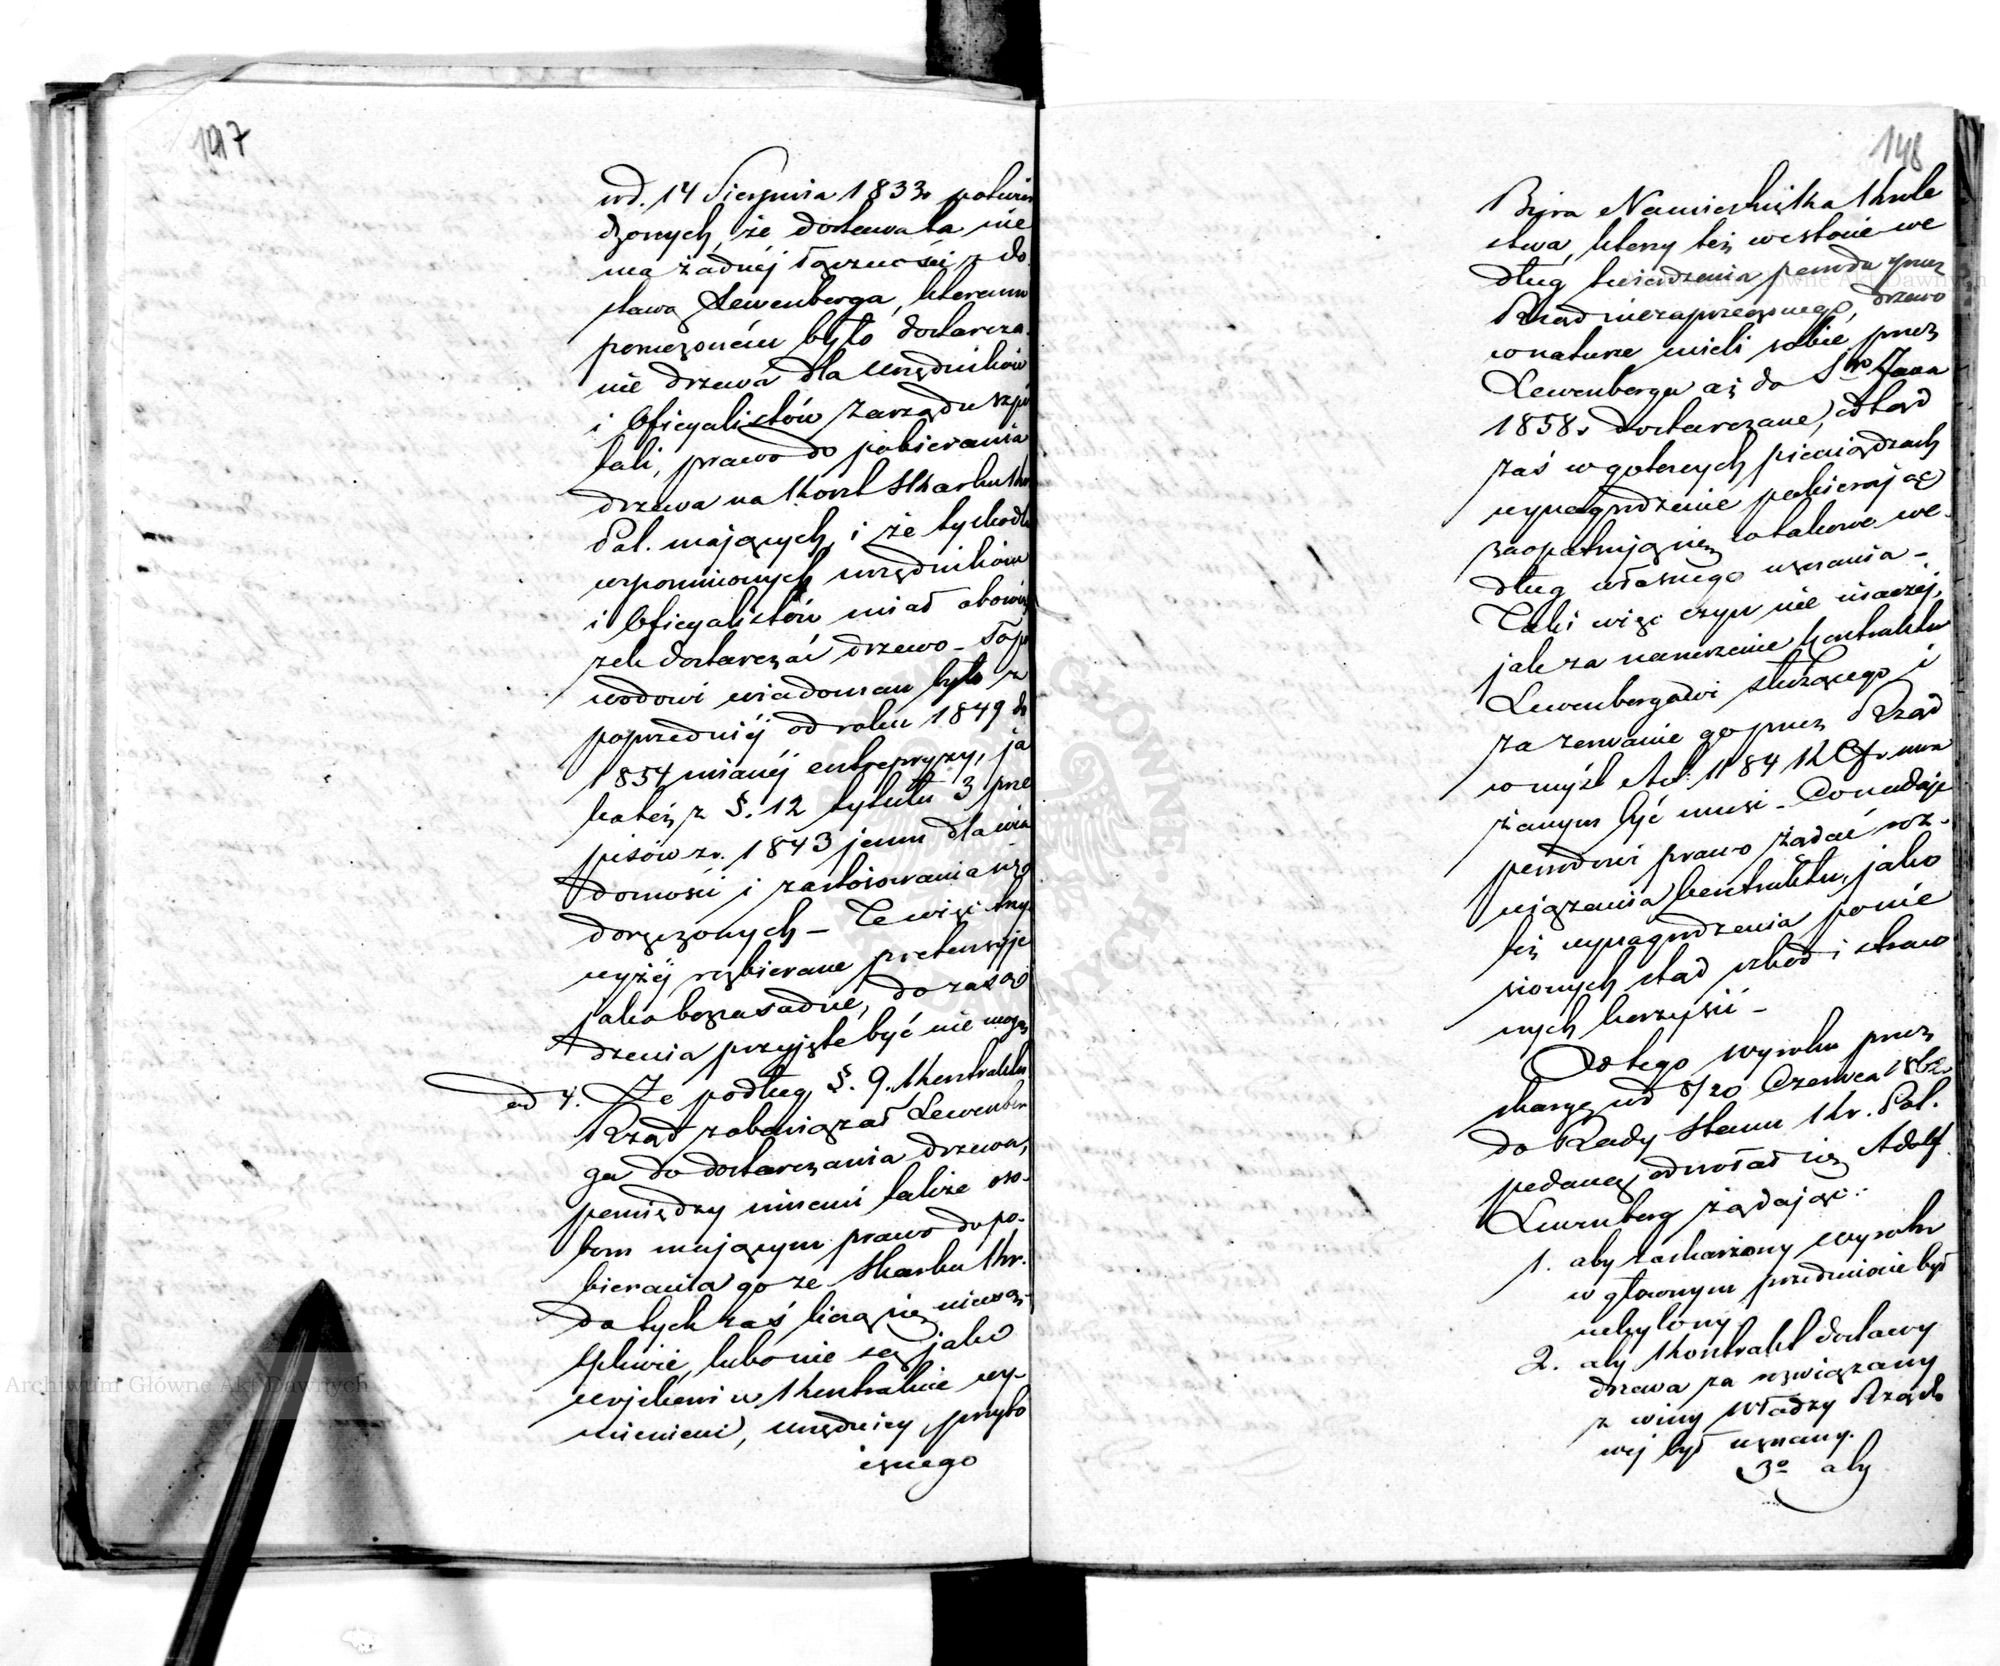 147
wd. 14 Sierpnia 1833 r potwier
dzonych, że dostawa ta nie
ma żadnéj łączności z do
stawą Lewenberga, któremu
poruczoném było dostarcza
nie drzewa dla urzędników
i Oficyalistów Zarządu szpi
tali, prawo do pobierania
drzewa na koszt Skarbu Kr
Pol. mających, i że tychodla
wspomnionych urzędników
i Oficyalistów miał obowią
zek dostarczać drzewo – do
wodowi wiadomem było z
poprzedniéj od roku 1849 do
1854 mianéj entrepryzy, ja
koteż z §. 12 tytułu 3 prze
pisów z r. 1843 jemu dla wia
domości i zastósowania się
doręczonych – Te więc trzy
wyżéj rozbierane pretensyje
jako bezzasadne, do zasą
dzenia przyjęte być nie mogą
ad 4. Że podług §. 9. Kontraktu
Rząd zobowiązał Lewenber
ga do dostarczania drzewa,
pomiędzy innemi także oso-
bom mającym prawo do po-
bierania go ze Skarbu Kr.
do tych zaś liczą się niewąt-
pliwie, lubo nie są jako
wojskowi w Kontrakcie wy-
mienieni, urzędnicy przybo
cznego
148
Bióra Namiestnika Króle
stwa, którzy też w istocie we
dług twierdzenia powoda przez
Rząd niezaprzeczonego, drzewo
w naturze mieli sobie przez
Lewenberga aż do 1go Jana
1858 r dostarczane, odtąd
zaś w gotowych pieniądzach
wynagrodzenie pobierając
zaopatrują się w takowe we-
dług własnego uznania –
Taki więc czyn nie inaczej,
jak za naruszenie kontraktu
Lewenbergowi służącego i
za zerwanie go przez Rząd
w myśl Art: 1184 K C Fr. uwa
żanym być musi – Co nadaje
powodowi prawo żądać roz-
wiązania kontraktu, jako
téż wynagrodzenia ponie
sionych stąd szkód i straco
nych korzyści –
Od tego wyroku przez
skargę wd 8/20 Czerwca 1862 r
do Rady Stanu Kr. Pol.
podaną, odwołał się Adolf
Lewenberg żądając:
1. aby zaskarżony wyrok
w głównym przedmiocie był
uchylony
2. aby Kontrakt dostawy
drzewa za rozwiązany
z winy Władzy Rządo
wéj był uznany.
3o aby
Archiwum Główne Akt Dawnych